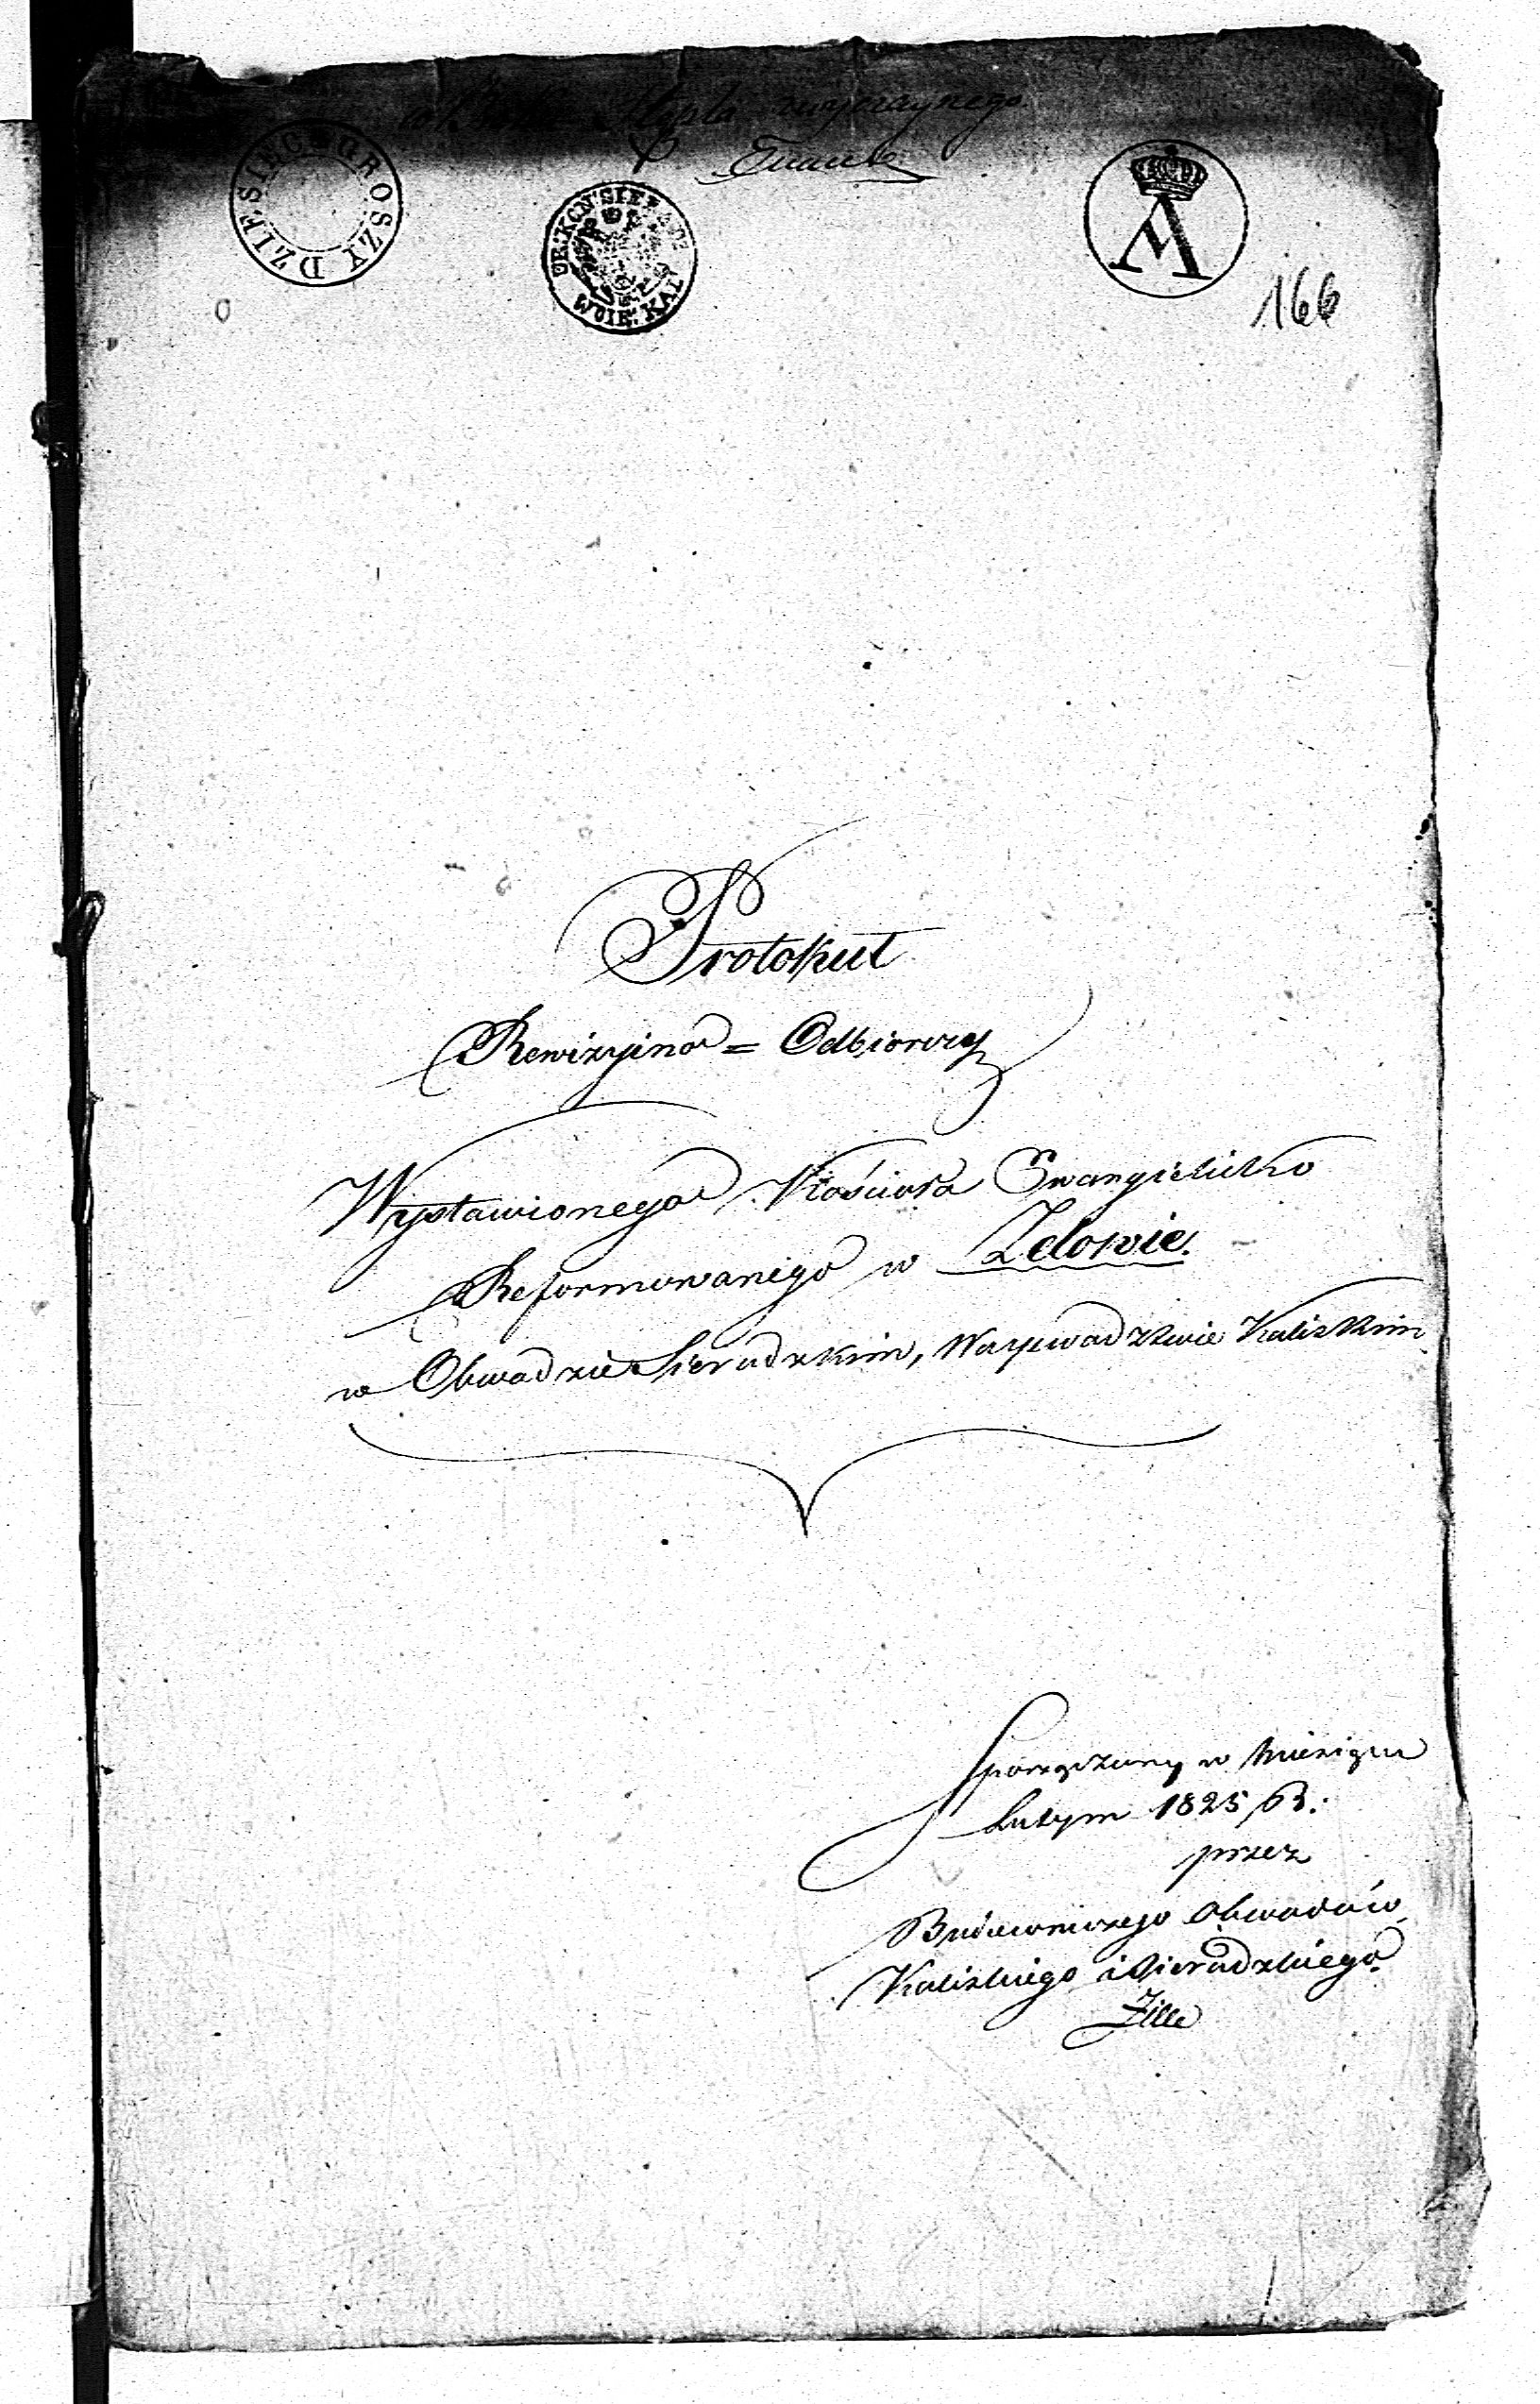 Stępla zwyczaynego
DZIESIEC GROSZY
WOIE: KAL
A
166
Protokuł
Rewizyino = Odbiorczy
Wystawionego Kościoła Ewangielicko
Reformowanego w Zelowie.
w Obwodzie Sieradzkim, Woyewodztwie Kaliskim
Sporządzony w Miesiącu
Lutym 1825 R.:
przez
Budowniczego Obwodów
Kaliskiego i Sieradzkiego.
Zille